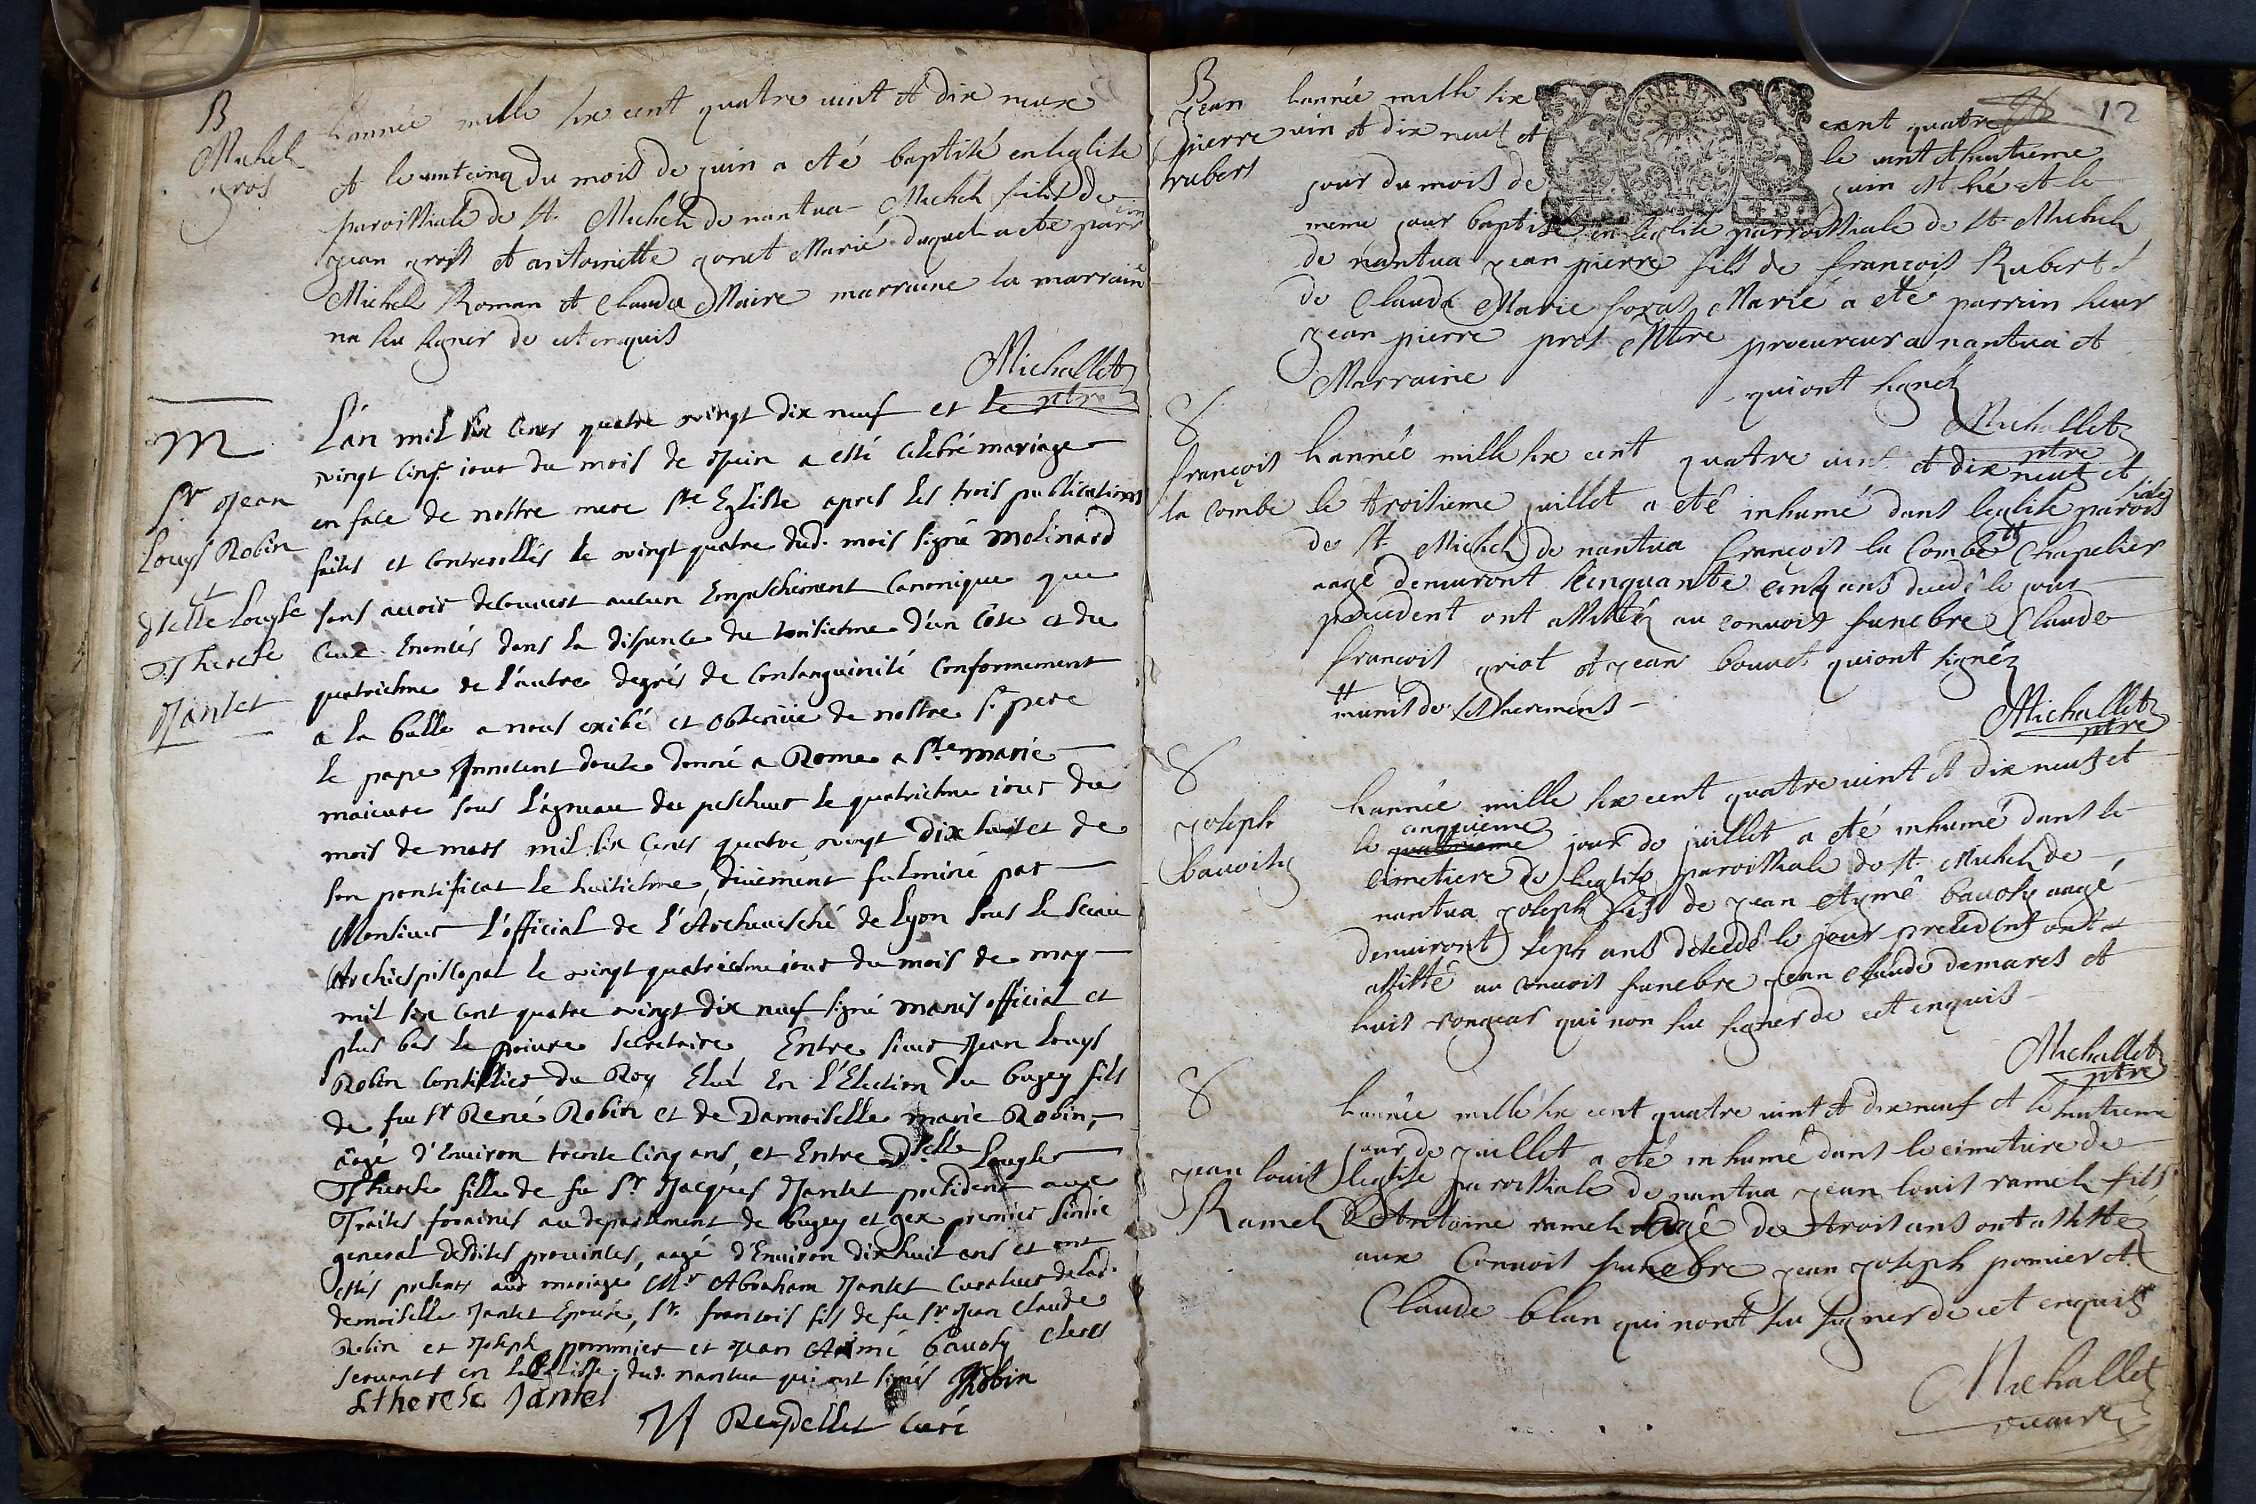 B
Michel
gros
Lannée mille six cent quatre vint et dix neux
et le vintcinq du mois de juin a eté baptisé en leglise
paroissiale de st. Michel de nantua Michel fils de
jean grost et antoinette gonet Marié duquel a eté parrin
Michel Roman et Claudα Maire marraine la marraine
na sceu signer de cet enquis
Michallet
ptre
M
Sr Jean
Louys Robin
et
dlelle Louyse
Therese
Jantet
L'an mil six cens quatre vingt dix neuf et le
vingt cinqe jour du mois de Juin a esté celebré mariage
en face de nostre mere Ste Eglisse apres les trois publications
faites et controllés le vingt quatre dud. mois signé Molinard
sans avoir decouvert aucun Empeschement canonique que
ceux enoncés dans la dispence du troisiesme d'un côte et du
quatriesme de l'autre degrés de consanguinité conformement
a la bulle a nous exibé et obtenüe de nostre St pere
le pape Innocent douze donné a Rome a Ste marie
maieure sous l'agneau du pescheur le quatriesme jour du
mois de mars mil six cens quatre vingt dix huit et de
son pontificat le huitiesme, düement fulminé par
Monsieur l'official de l'Archevesché de Lyon sous le sceau
Archiepiscopal le vingt quatriesme jour du mois de may
mil six cent quatre vingt dix neuf signé manis official et
plus bas le poivre secretaire Entre sieur Jean Louys
Robin conseillier du Roy Elu En l'Election du bugey fils
de feu Sr René Robin et de Damoiselle marie Robin,
âagé d'Environ trente cinq ans, et Entre Dlelle Louyse
Therese fille de fu Sr Jacques Jantet president aux
Traites foraines au departement de bugey et gex premier sindic
general desdites provinces, aagé d'Environ dixhuit ans et ont
estés presents aud mariage Mr Abraham Jantet curateur de lad.
demoiselle Jantet Epouse, Sr. francois fils de fu Sr Jean Claude
Robin et Joseph pommier et Jean Aimé bavosy clercs
servants en l'Eglisse dud. nantua qui ont signés JRobin
Ltherese Jantet
Reydellet curé
12
B
Jean
pierre
rubert
Lannée mille six cent quatre
vin et dix neuf et le vint et huitieme
jour du mois de juin est né et le
meme jour baptisé en leglise parroissiale de st Michel
de nantua jean pierre fils de françois Rubert et
de Claudα Marie foras Marié a eté parrin sieur
jean pierre prost Mtre procureur a nantua et
Marraine qui ont signéz
Michallet
ptre
S
françois
la combe
Lannée mille six cent quatre vint et dix neuf et
le troisieme juillet a eté inhumé dans leglise parois
siale
de st. Michel de nantua françois la Combe # Chapelier
aagé denuiront cinquante cinq ans decedé le jour
precedent ont assistéz au convoit funebre Claude
françois griot et jean bouvet qui ont signéz
# munis de ses sacrements
Michallet
ptre
S
joseph
bavoisy
Lannée mille six cent quatre vint et dix neuf et
le quatrieme cinquieme jour de juillet a eté inhumé dans le
cimetiere de leglise paroissiale de st. Michel de
nantua joseph fils de jean Aymé bavosy aagé
denuiront seph ans decedé le jour precedent ont
assisté au convoit funebre jean claude demares et
luis rongear qui non su signer de cet enquis
Michallet
ptre
S
jean louis
Ramel
Lannée mille six cent quatre vint et dix neuf et le huitieme
jour de juillet a eté inhumé dans le cimetiere de
leglise paroissiale de nantua jean louis ramel fils
Dantoine ramel aagé de trois ans ont assistéz
aux Convoit funebre jean joseph pomier et
Claude blan qui nont su signer de cet enquis
Michallet
vicaire